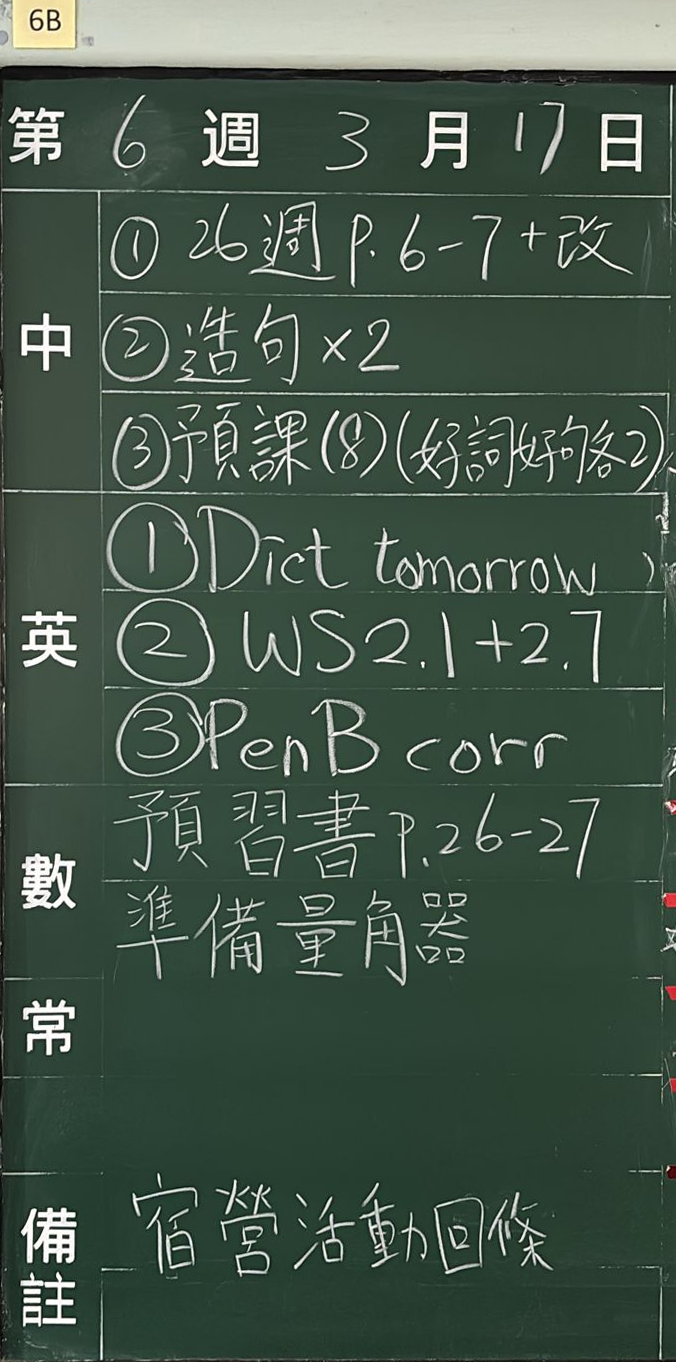 6B
第 6 週 3 月 17 日
中
① 26週 P. 6-7+改
② 造句 ×2
③ 預課 (8) (好詞好句各2)
英
① Dict tomorrow
② WS 2.1+2.7
③ Pen B corr
數
預習書 P.26-27
準備量角器
常
備註
宿營活動回條